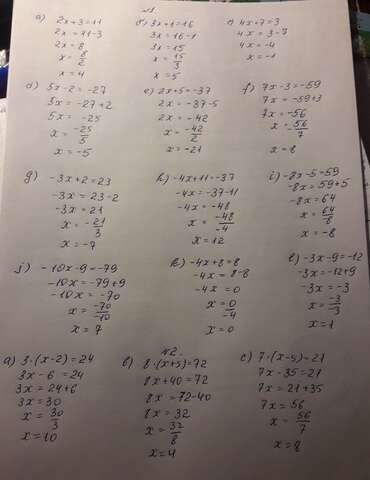 №1
a) 2x+3=11
2x=11-3
2x=8
x=8/2
x=4
б) 3x+1=16
3x=16-1
3x=15
x=15/3
x=5
c) 4x+7=3
4x=3-7
4x=-4
x=-1
d) 5x-2=-27
5x=-27+2
5x=-25
x=-25/5
x=-5
e) 2x+5=-37
2x=-37-5
2x=-42
x=-42/2
x=-21
f) 7x-3=-59
7x=-59+3
7x=-56
x=-56/7
x=8
g) -3x+2=23
-3x=23-2
-3x=21
x=-21/3
x=-7
h) -4x+11=-37
-4x=-37-11
-4x=-48
x=-48/-4
x=12
i) -8x-5=59
-8x=59+5
-8x=64
x=64/-8
x=-8
j) -10x-9=-79
-10x=-79+9
-10x=-70
x=-70/-10
x=7
k) -4x+8=8
-4x=8-8
-4x=0
x=0/-4
x=0
l) -3x-9=-12
-3x=-12+9
-3x=-3
x=-3/-3
x=1
№2.
a) 3·(x-2)=24
3x-6=24
3x=24+6
3x=30
x=30/3
x=10
b) 8·(x+5)=72
8x+40=72
8x=72-40
8x=32
x=32/8
x=4
c) 7·(x-5)=21
7x-35=21
7x=21+35
7x=56
x=56/7
x=8